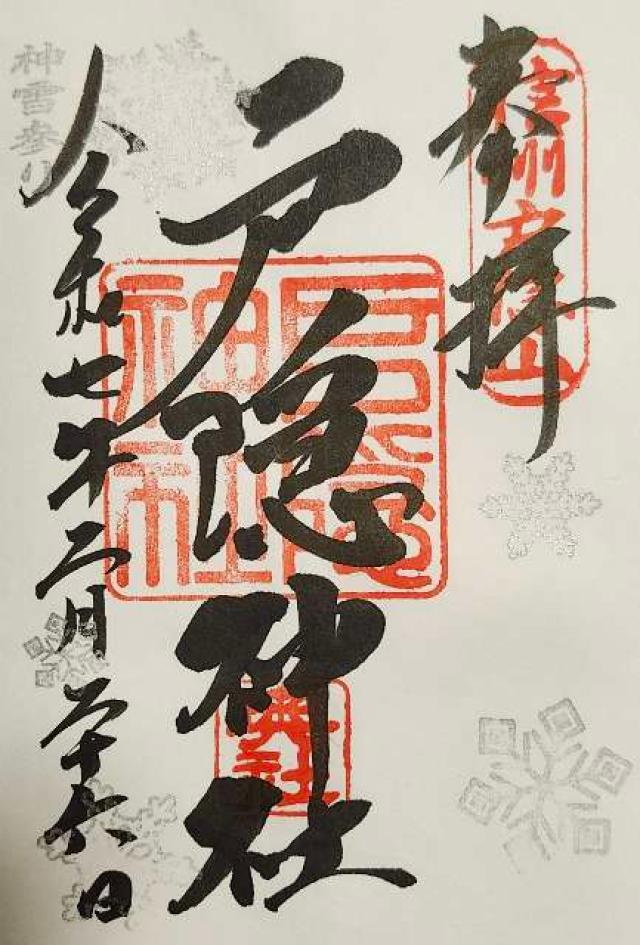 奉拝
信州戸隠山
戸隠神社
戸隠神社
奥社
令和七年二月二十六日
神雪参り